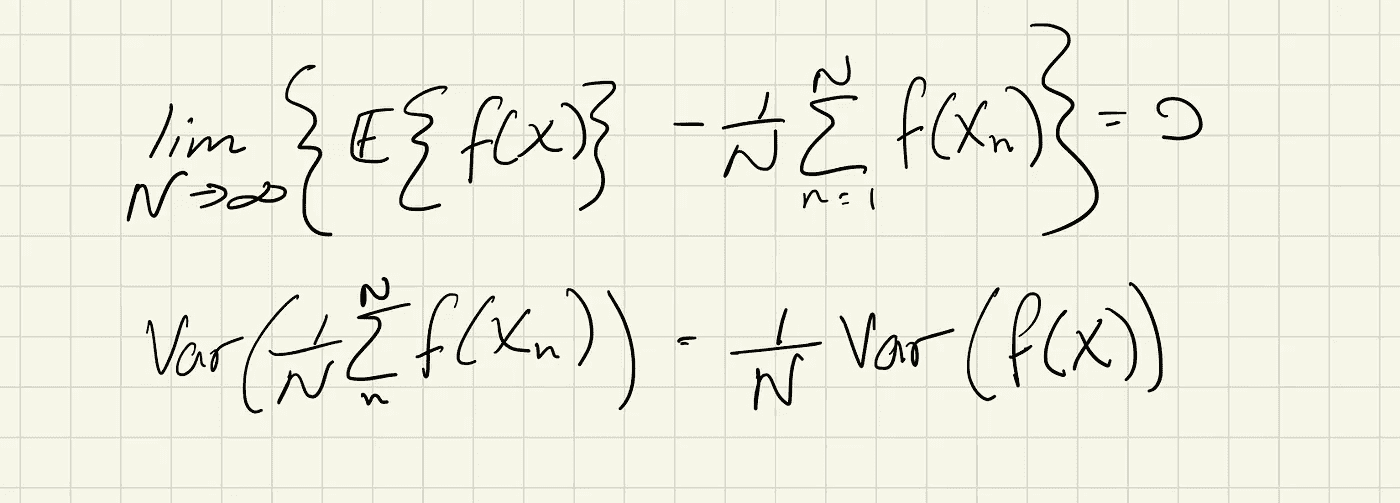 \lim_{N \to \infty} \left\{ \mathbb{E}\left\{ f(X) \right\} - \frac{1}{N} \sum_{n=1}^{N} f(X_n) \right\} = 0
Var\left( \frac{1}{N} \sum_{n}^{N} f(X_n) \right) = \frac{1}{N} Var\left( f(X) \right)